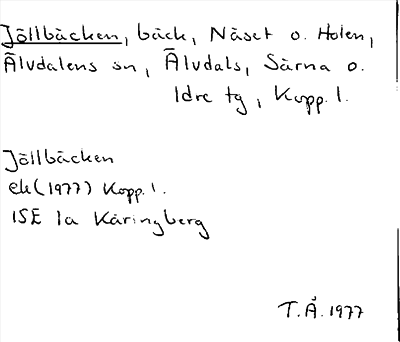 Jöllbäcken, bäck, Näset o. Holen,
Älvdalens sn, Älvdals, Särna o.
Idre tg, Kopp. l.
Jöllbäcken
ek (1977) Kopp. l.
15E 1a Käringberg
T.Å. 1977